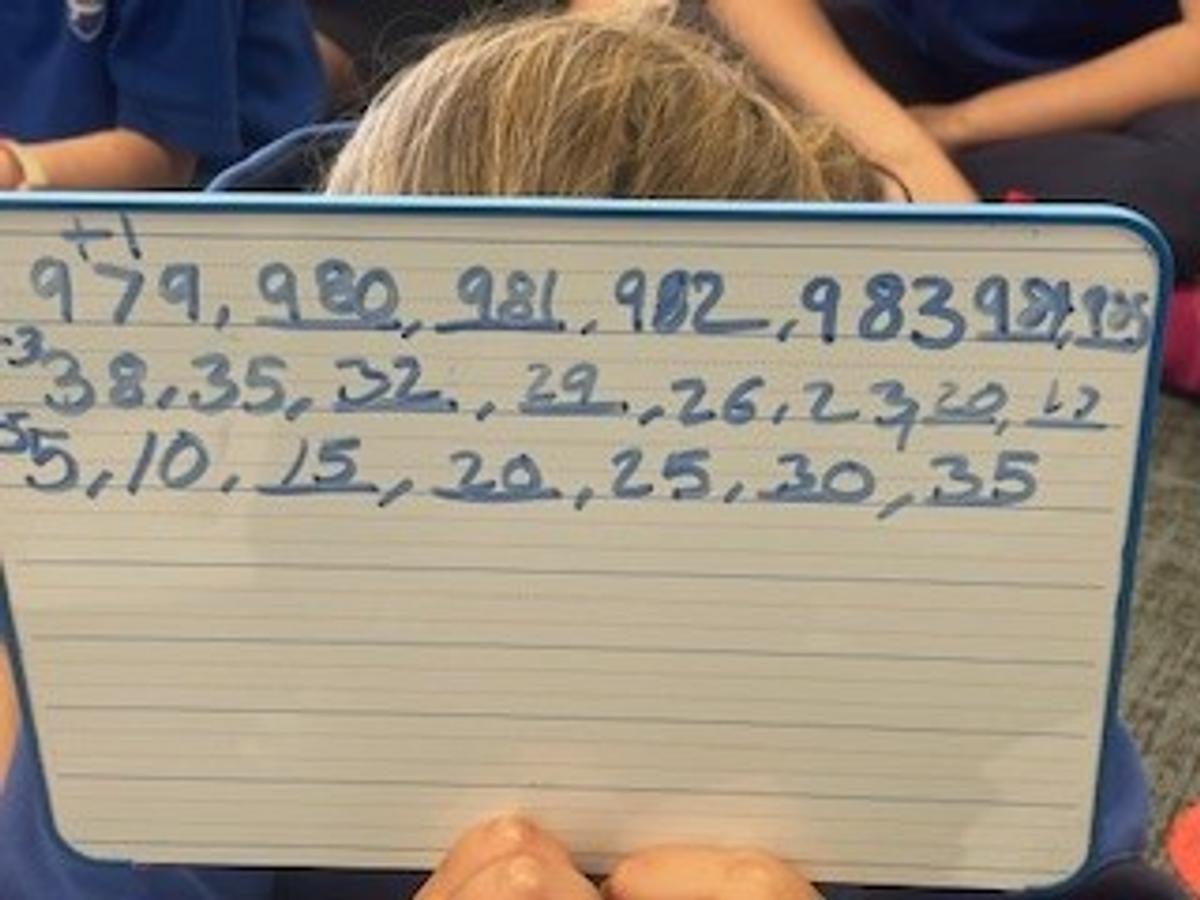 +1
979, 980, 981, 982, 983 984, 985
-3 38, 35, 32, 29, 26, 23, 20, 17
5 5, 10, 15, 20, 25, 30, 35